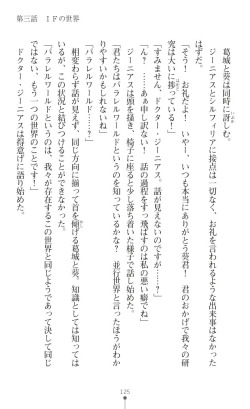 第三話　ＩＦの世界
葛城と葵は同時に訝しむ。
ジーニアスとシルフィリアに接点は一切なく、お礼を言われるような出来事はなかった
はずだ。
「そう！　お礼だよ！　いや～、いつも本当にありがとう葵君！　君のおかげで我々の研
究は大いに捗っている！」
「すみません、ドクター・ジーニアス。話が見えないのですが……？」
「ん？　……あぁ申し訳ない！　話の過程をすっ飛ばすのは私の悪い癖でね」
ジーニアスは頭を掻き、椅子に座ると少し落ち着いた様子で話し始めた。
「君たちはパラレルワールドというのを知っているかな？　並行世界と言ったほうがわか
りやすいかもしれないね」
「パラレルワールド……？」
相変わらず話が見えず、同じ方向に揃って首を傾げる葛城と葵。知識としては知っては
いるが、この状況と結びつけることができなかった。
「パラレルワールドというのは、我々が存在するこの世界と同じようであって決して同じ
ではない、もう一つの世界のことです！」
ドクター・ジーニアスは得意げに語り始めた。
125